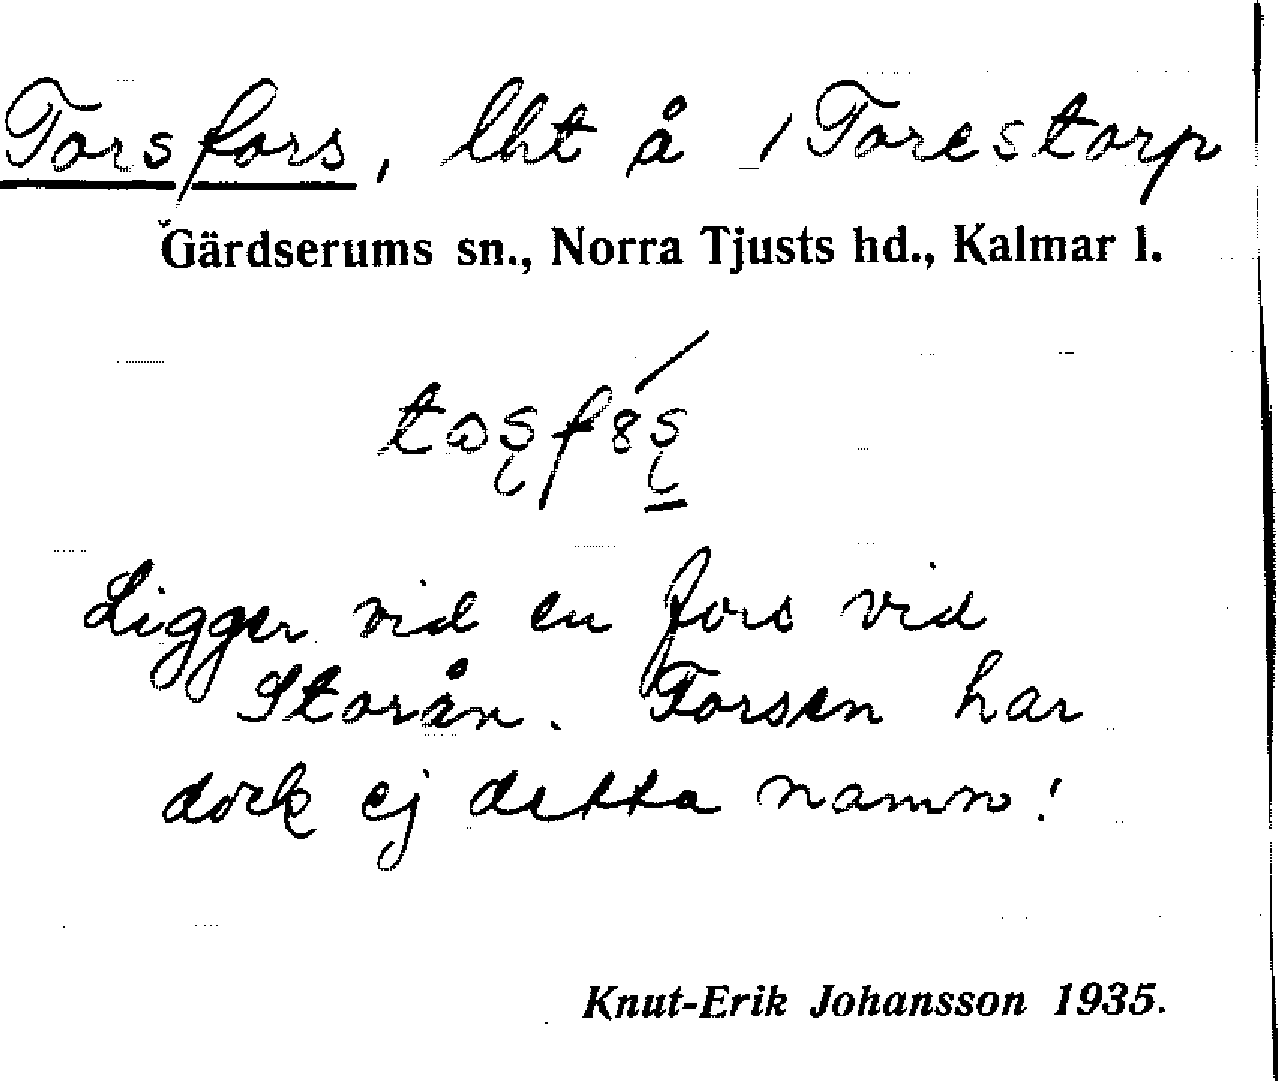 Torsfors, lht å 1 Torestorp
Gärdserums sn., Norra Tjusts hd., Kalmar l.
Ligger vid en fors vid
Storån. Forsen har
dock ej detta namn!
Knut-Erik Johansson 1935.